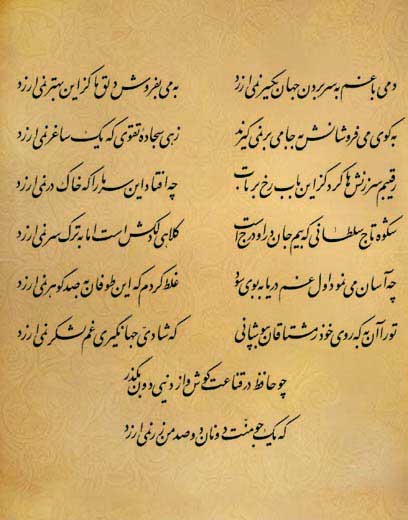 دمی با غم به سر بردن جهان یکسر نمی ارزد به می بفروش دلق ما کز این بهتر نمی ارزد
به کوی می فروشانش به جامی بر نمی گیرند زهی سجاده تقوی که یک ساغر نمی ارزد
رقیبم سرزنش ها کرد کز این باب رخ برتاب چه افتاد این سر ما را که خاک در نمی ارزد
شکوه تاج سلطانی که بیم جان در او درج است کلاهی دلکش است اما به ترک سر نمی ارزد
چه آسان می نمود اول غم دریا به بوی سود غلط کردم که این طوفان به صد گوهر نمی ارزد
تو را آن به که روی خود ز مشتاقان بپوشانی که شادی جهانگیری غم لشکر نمی ارزد
چو حافظ در قناعت کوش و از دنیی دون بگذر
که یک جو منّت دونان دو صد من زر نمی ارزد